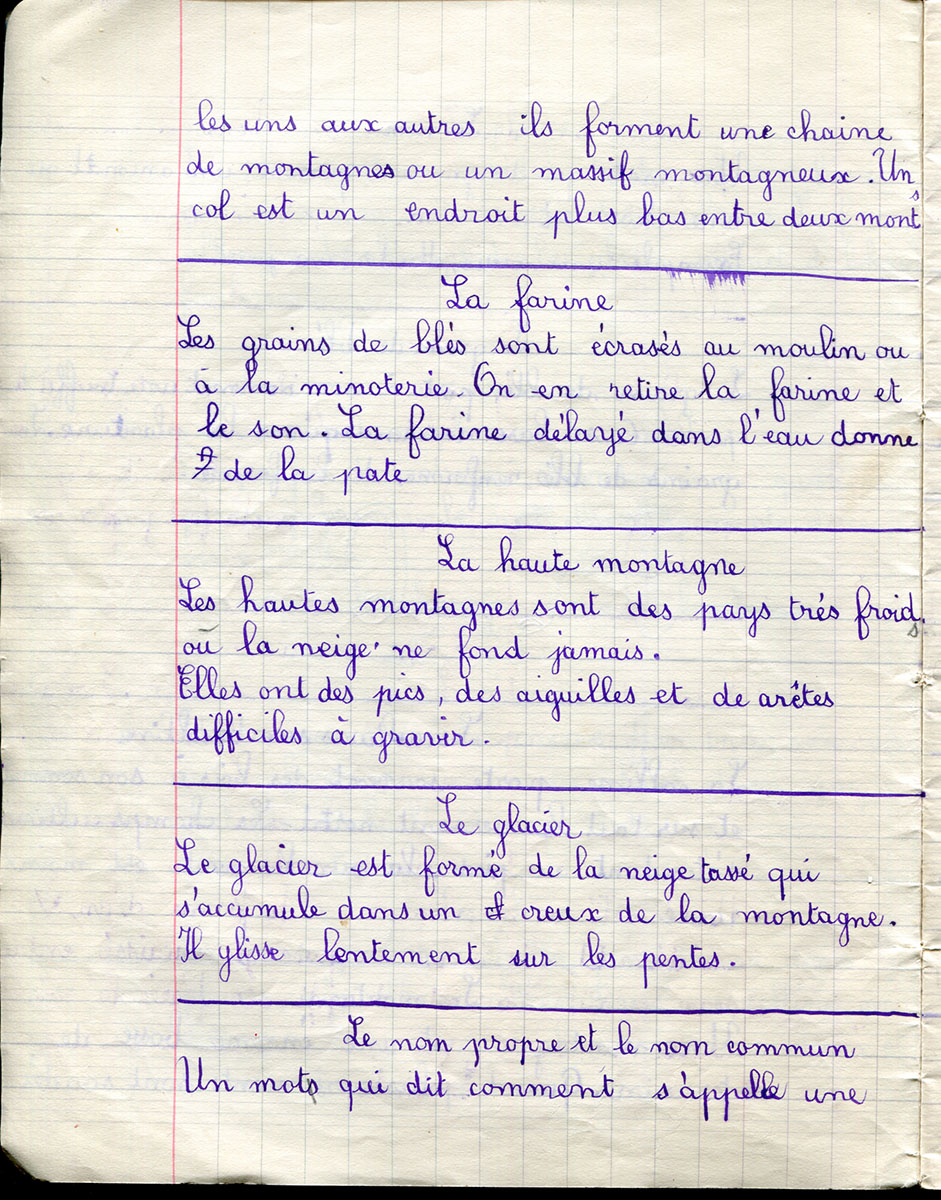 les uns aux autres ils forment une chaine
de montagnes ou un massif montagneux. Un
col est un endroit plus bas entre deux monts
La farine
Les grains de blés sont écrasés au moulin ou
à la minoterie. On en retire la farine et
le son. La farine délayé dans l'eau donne
de la pate
La haute montagne
Les hautes montagnes sont des pays trés froids.
où la neige ne fond jamais.
Elles ont des pics, des aiguilles et de arêtes
difficiles à gravir.
Le glacier
Le glacier est formé de la neige tassé qui
s'accumule dans un creux de la montagne.
Il glisse lentement sur les pentes.
Le nom propre et le nom commun
Un mots qui dit comment s'appelle une